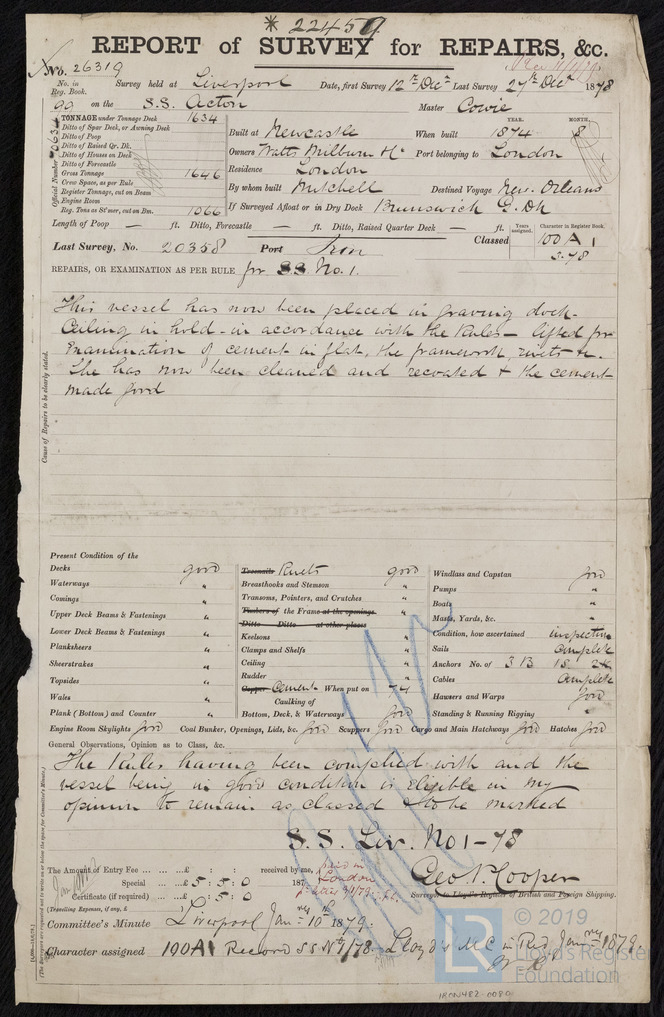 * 22459
REPORT of SURVEY for REPAIRS, &c.
No. 26319
No. in Reg. Book. Survey held at Liverpool Date, first Survey 12th Decr Last Survey 27th Decr 1878
90 on the S.S. Acton Master Cowie
TONNAGE under Tonnage Deck 1634
Ditto of Spar Deck, or Awning Deck
Ditto of Poop
Ditto of Raised Qr. Dk.
Ditto of Houses on Deck
Ditto of Forecastle
Gross Tonnage 1646
Crew Space, as per Rule
Register Tonnage, cut on Beam
Engine Room
Reg. Tons as St'mer, cut on Bm. 1066
Official Number
YEAR. MONTH.
Built at Newcastle When built 1874 8
Owners Watts Milburn & Co Port belonging to London
Residence London
By whom built Mitchell Destined Voyage New Orleans
If Surveyed Afloat or in Dry Dock Brunswick G. Dk
Length of Poop — ft. Ditto, Forecastle — ft. Ditto, Raised Quarter Deck — ft.
Years assigned. Character in Register Book.
Last Survey, No. 20358 Port Iron Classed 100 A 1
5-78
REPAIRS, OR EXAMINATION AS PER RULE for S.S. No. 1.
This vessel has now been placed in graving dock.
Ceiling in hold - in accordance with the Rules - lifted for
Examination of cement in flat, the framework, rivets &c.
She has now been cleaned and recoated & the cement
made good
Cause of Repairs to be clearly stated.
Present Condition of the
Decks good
Waterways "
Comings "
Upper Deck Beams & Fastenings "
Lower Deck Beams & Fastenings "
Planksheers "
Sheerstrakes "
Topsides "
Wales "
Plank (Bottom) and Counter "
Treenails Rivets good
Breasthooks and Stemson "
Transoms, Pointers, and Crutches "
Timbers of the Frame at the openings. "
Ditto Ditto at other places
Keelsons "
Clamps and Shelfs "
Ceiling "
Rudder "
Copper Cement When put on 74
Caulking of
Bottom, Deck, & Waterways good
Windlass and Capstan good
Pumps "
Boats "
Masts, Yards, &c. "
Condition, how ascertained inspection
Sails Complete
Anchors No. of 3 B 1 S 2 K
Cables Complete
Hawsers and Warps good
Standing & Running Rigging "
Engine Room Skylights good Coal Bunker, Openings, Lids, &c. good Scuppers good Cargo and Main Hatchways good Hatches good
General Observations, Opinion as to Class, &c.
The Rules having been complied with and the
vessel being in good condition is eligible in my
opinion to remain as classed & to be marked
S.S. Liv. No 1-78
The Amount of Entry Fee ... £ : : received by me,
Special ... £ 5 : 5 : 0 187
Certificate (if required) ... £ : 5 : 0
(Travelling Expenses, if any, £ )
paid in
London
Geo N. Cooper
Surveyor to Lloyd's Register of British and Foreign Shipping.
Committee's Minute Liverpool Jany 10th 1879.
Character assigned 100A1 Record SS No 1/78 Lloyd's MC in Red Jany 1879.
IRON482-0080
LR © 2019
Lloyd's Register
Foundation